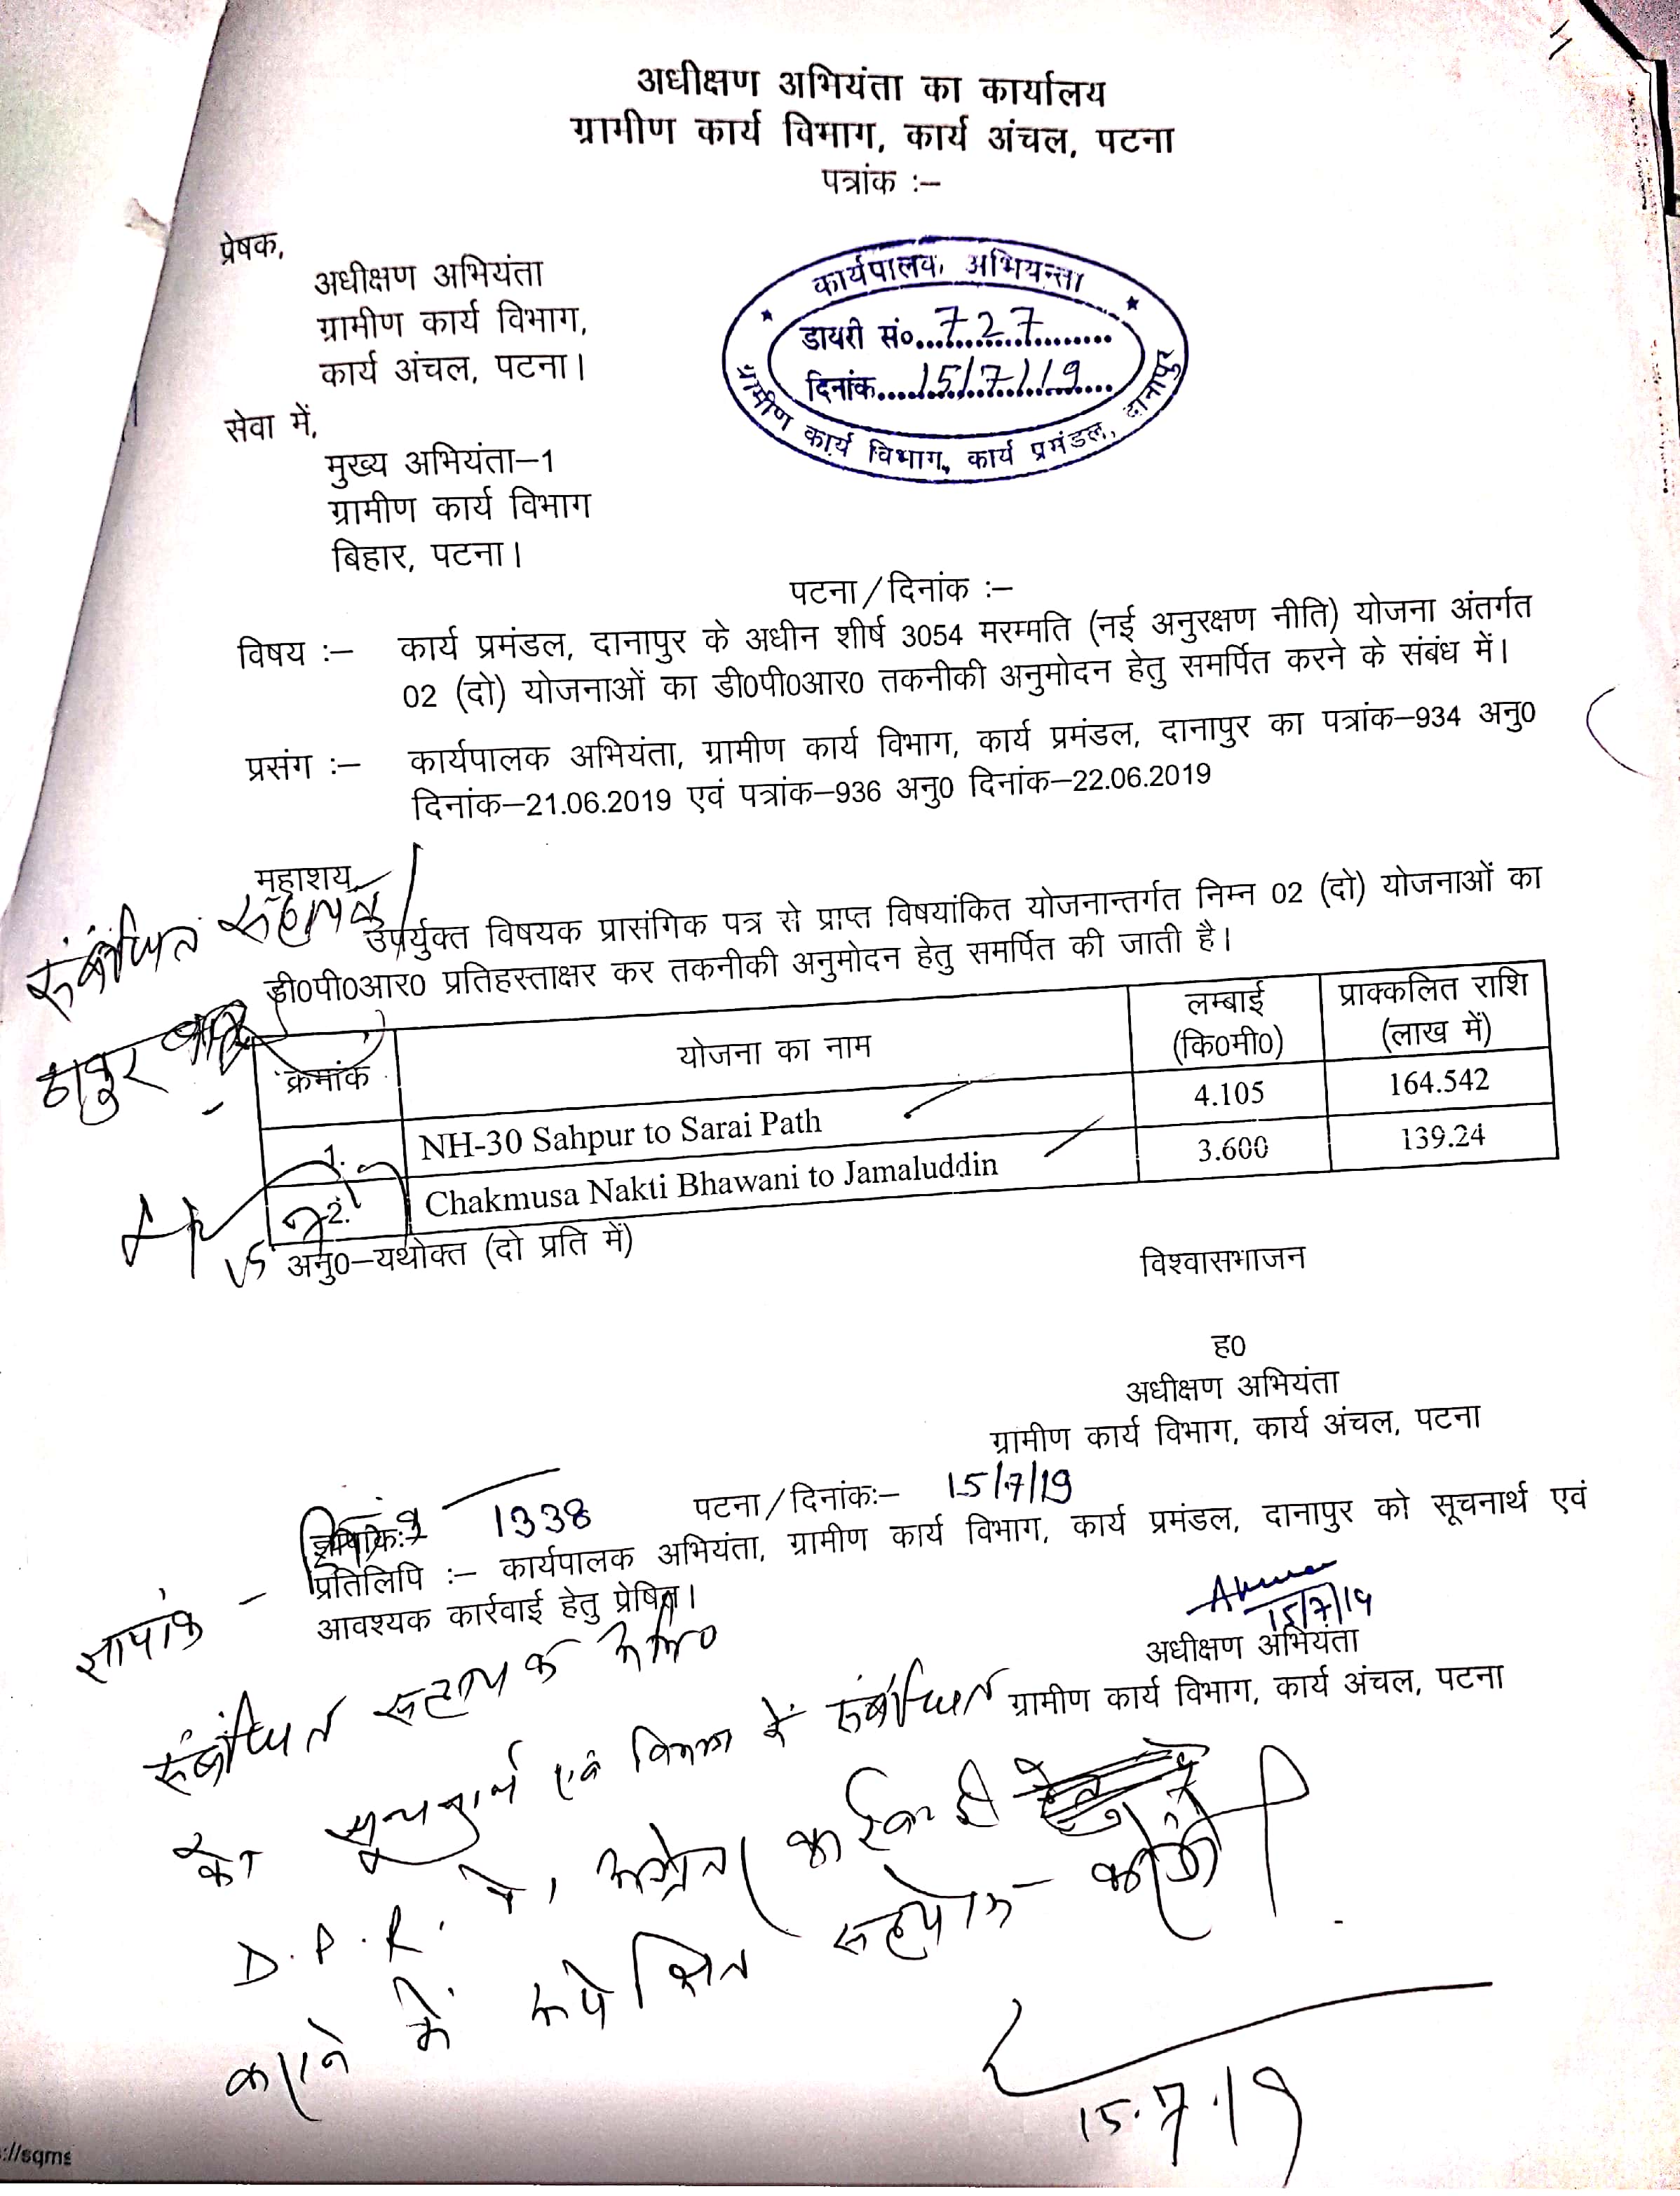 अधीक्षण अभियंता का कार्यालय
ग्रामीण कार्य विभाग, कार्य अंचल, पटना
पत्रांक :–
प्रेषक,
अधीक्षण अभियंता
ग्रामीण कार्य विभाग,
कार्य अंचल, पटना।
कार्यपालक अभियन्ता
डायरी सं० 727
दिनांक 15/7/19
ग्रामीण कार्य विभाग, कार्य प्रमंडल, दानापुर
सेवा में,
मुख्य अभियंता–1
ग्रामीण कार्य विभाग
बिहार, पटना।
पटना/दिनांक :–
विषय :– कार्य प्रमंडल, दानापुर के अधीन शीर्ष 3054 मरम्मति (नई अनुरक्षण नीति) योजना अंतर्गत
02 (दो) योजनाओं का डी0पी0आर0 तकनीकी अनुमोदन हेतु समर्पित करने के संबंध में।
प्रसंग :– कार्यपालक अभियंता, ग्रामीण कार्य विभाग, कार्य प्रमंडल, दानापुर का पत्रांक–934 अनु0
दिनांक–21.06.2019 एवं पत्रांक–936 अनु0 दिनांक–22.06.2019
महाशय,
संबंधित सहायक
उपर्युक्त विषयक प्रासंगिक पत्र से प्राप्त विषयांकित योजनान्तर्गत निम्न 02 (दो) योजनाओं का
डी0पी0आर0 प्रतिहस्ताक्षर कर तकनीकी अनुमोदन हेतु समर्पित की जाती है।
क्रमांक योजना का नाम लम्बाई (कि0मी0) प्राक्कलित राशि (लाख में)
1. NH-30 Sahpur to Sarai Path 4.105 164.542
2. Chakmusa Nakti Bhawani to Jamaluddin 3.600 139.24
अनु0–यथोक्त (दो प्रति में)
विश्वासभाजन
ह0
अधीक्षण अभियंता
ग्रामीण कार्य विभाग, कार्य अंचल, पटना
ज्ञापांक – 1338 पटना/दिनांक:– 15/7/19
प्रतिलिपि :– कार्यपालक अभियंता, ग्रामीण कार्य विभाग, कार्य प्रमंडल, दानापुर को सूचनार्थ एवं
आवश्यक कार्रवाई हेतु प्रेषित।
15/7/19
अधीक्षण अभियंता
ग्रामीण कार्य विभाग, कार्य अंचल, पटना
संबंधित सहायक अभि0
को सूचनार्थ एवं विभाग में संबंधित
D.P.R. में
कराने में अपेक्षित सहयोग करेंगे
15.7.19
://sqms